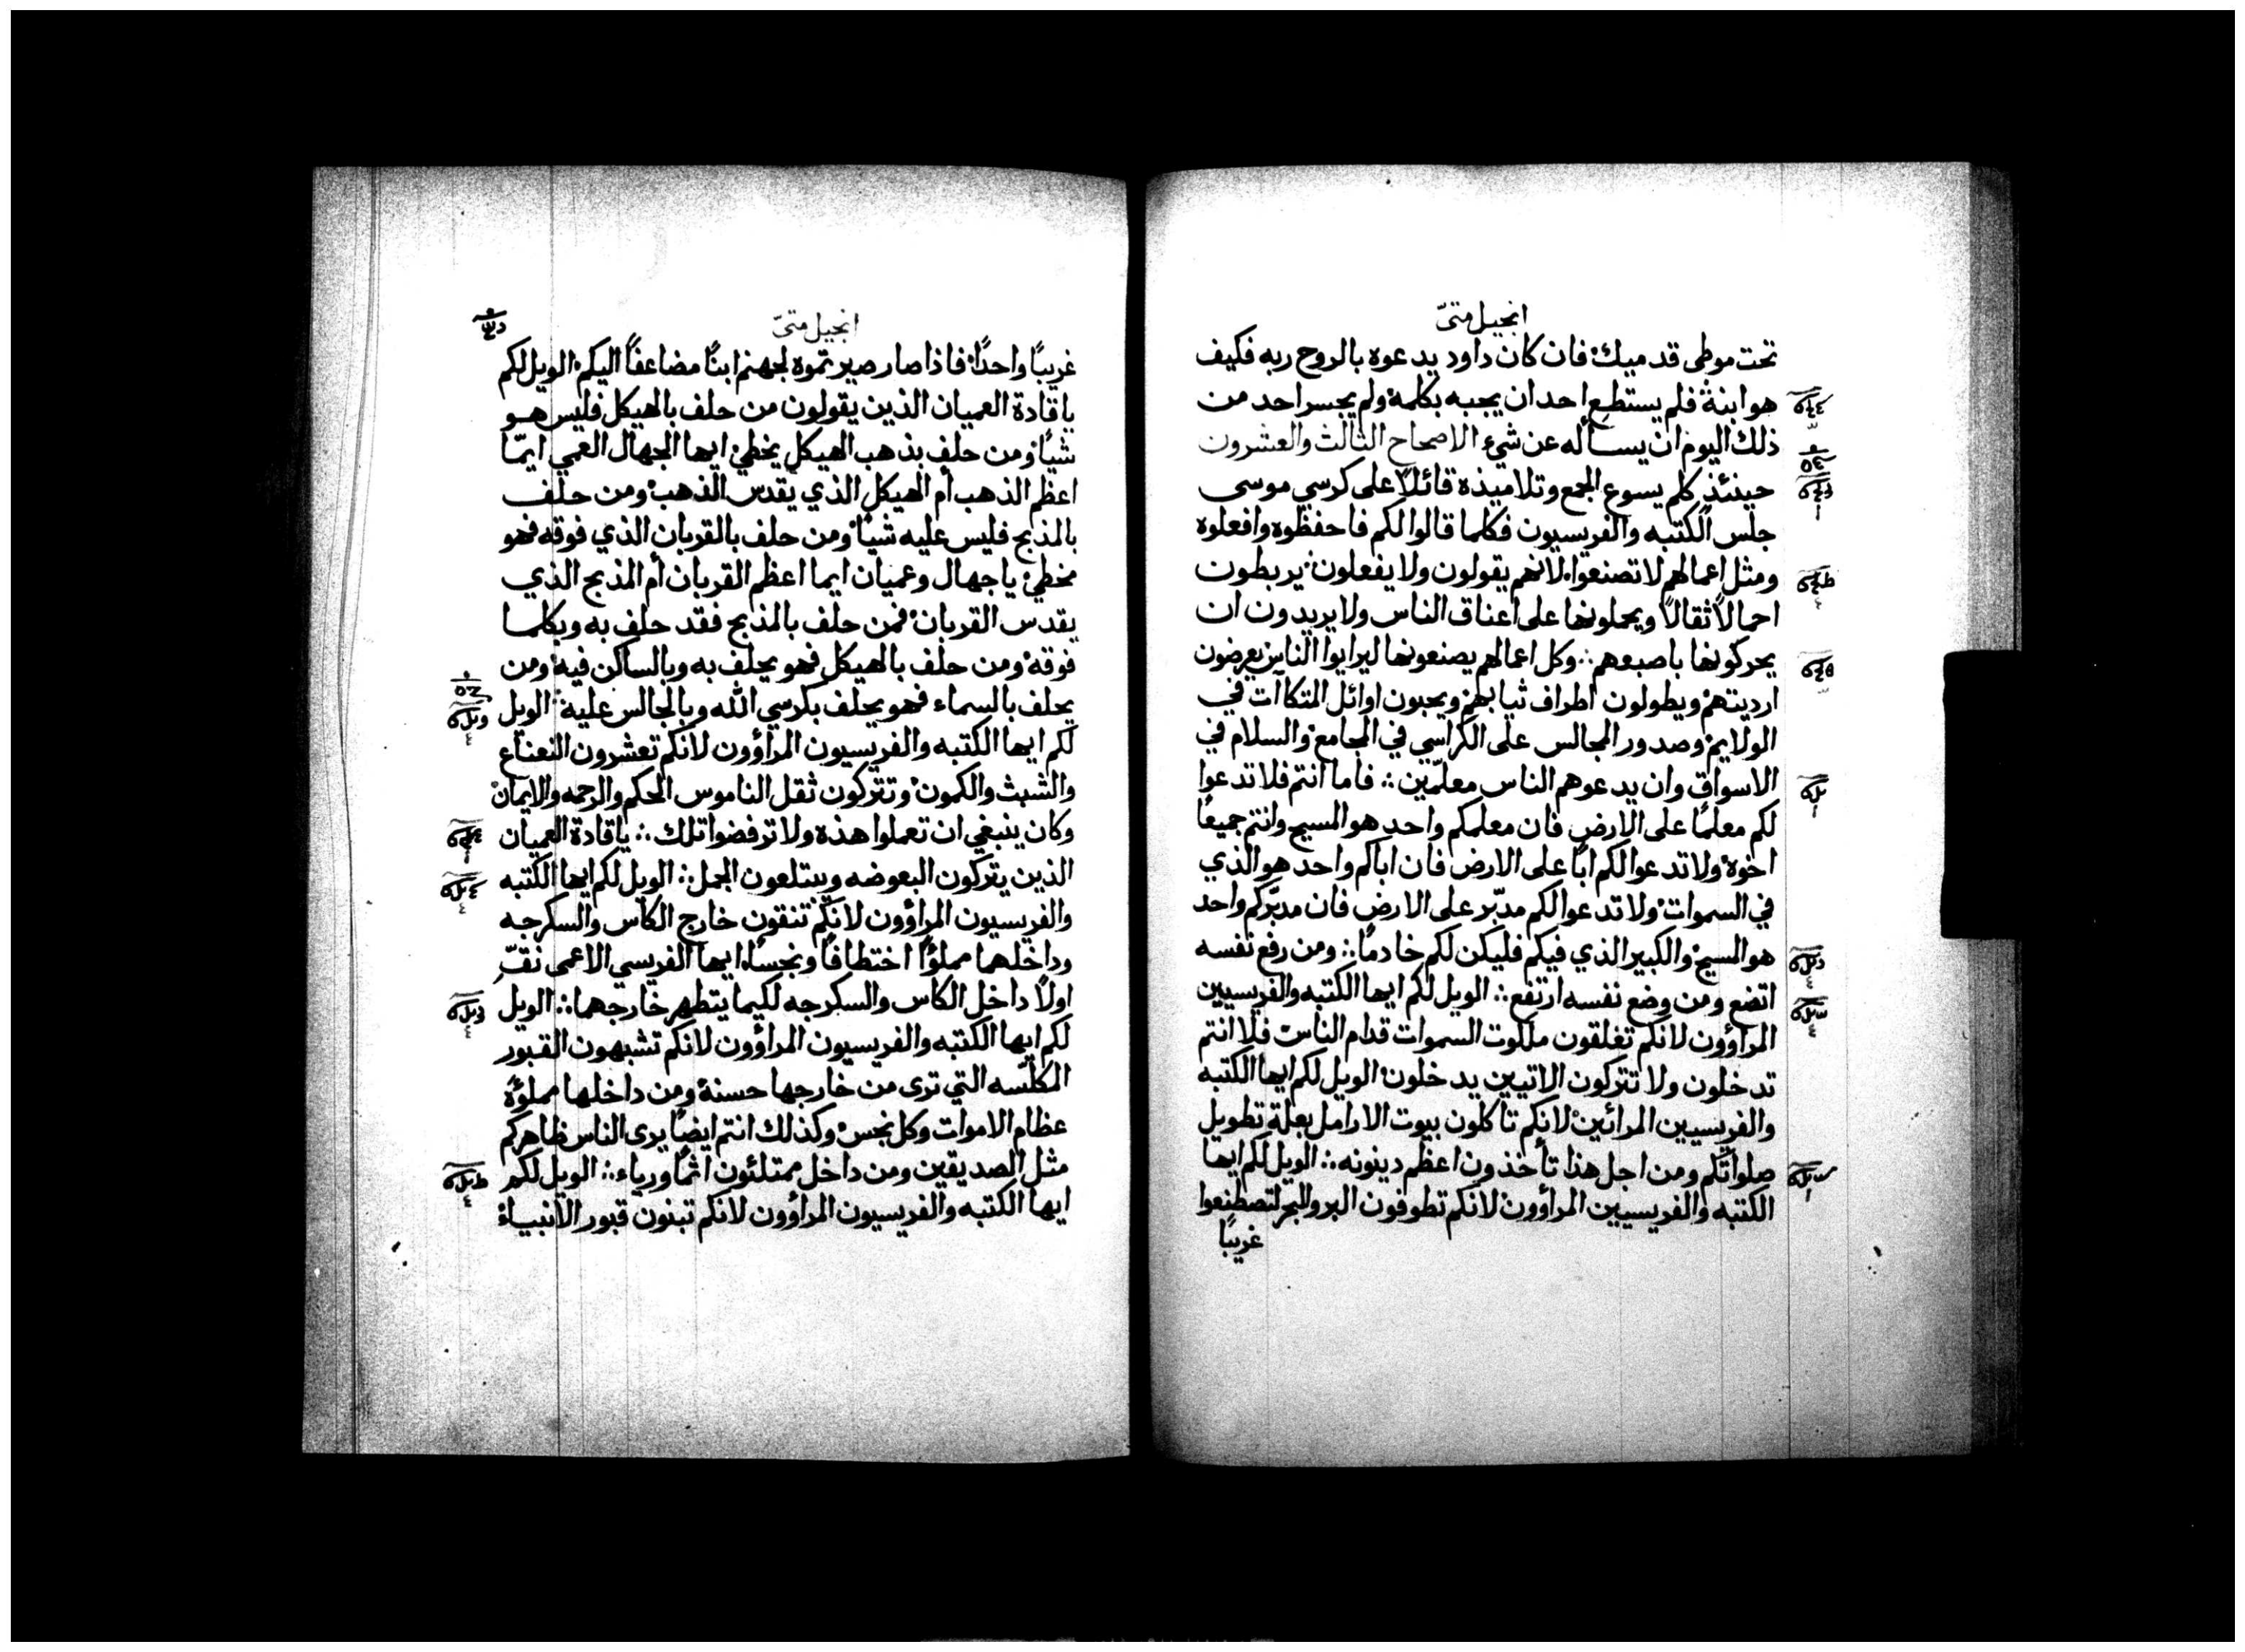 انجيل متىّ
تحت موطى قدميك فان كان داود يدعوه بالروح ربه فكيف
هو ابنه فلم يستطع احد ان يجبه بكلمة ولم يجسر احد من
ذلك اليوم ان يسأله عن شيء الاصحاح الثالث والعشرون
حينئذ كلم يسوع الجمع وتلاميذه قائلاً على كرسي موسى
جلس الكتبه والفريسيون فكلما قالوا لكم فاحفظوه وافعلوه
ومثل اعمالهم لا تصنعوا لانهم يقولون ولا يفعلون يربطون
احمالاً ثقالاً ويحملونها على اعناق الناس ولا يريدون ان
يحركونها باصبعهم وكل اعمالهم يصنعونها ليرايوا الناس يعرضون
ارديتهم ويطولون اطراف ثيابهم ويحبون اوائل المتكاآت في
الولايم وصدور المجالس على الكراسي في المجامع والسلام في
الاسواق وان يدعوهم الناس معلّمين فاما انتم فلا تدعوا
لكم معلمًا على الارض فان معلمكم واحد هو المسيح وانتم جميعًا
اخوة ولا تدعوا لكم ابًا على الارض فان اباكم واحد هو الذي
في السموات ولا تدعوا لكم مدبّر على الارض فان مدبّركم واحد
هو المسيح والكبير الذي فيكم فليكن لكم خادمًا ومن رفع نفسه
اتضع ومن وضع نفسه ارتفع الويل لكم ايها الكتبه والفريسيين
المراؤون لانكم تغلقون ملكوت السموات قدام الناس فلا انتم
تدخلون ولا تتركون الاتيين يدخلون الويل لكم ايها الكتبه
والفريسيين المرائين لانكم تاكلون بيوت الارامل بعلة تطويل
صلواتكم ومن اجل هذا تأخذون اعظم دينونه الويل لكم ايها
الكتبه والفريسيين المرأوون لانكم تطوفون البر والبحر لتصطنعوا
غريبًا
انجيل متىّ
غريبًا واحدًا فاذا صار صيرتموه لجهنم ابنًا مضاعفاً اليكم الويل لكم
يا قادة العميان الذين يقولون من حلف بالهيكل فليس هو
شيًا ومن حلف بذهب الهيكل يخطئ ايها الجهال العمي ايمّا
اعظم الذهب أم الهيكل الذي يقدس الذهب ومن حلف
بالمذبح فليس عليه شيًا ومن حلف بالقربان الذي فوقه فهو
مخطئ يا جهال وعميان ايما اعظم القربان أم المذبح الذي
يقدس القربان فمن حلف بالمذبح فقد حلف به وبكلما
فوقه ومن حلف بالهيكل فهو يحلف به وبالساكن فيه ومن
يحلف بالسماء فهو يحلف بكرسي الله وبالجالس عليه الويل
لكم ايها الكتبه والفريسيون المراؤون لانكم تعشرون النعناع
والشبث والكمون وتتركون ثقل الناموس الحكم والرحمه والايمان
وكان ينبغي ان تعملوا هذه ولا ترفضوا تلك يا قادة العميان
الذين يتركون البعوضه ويبتلعون الجمل الويل لكم ايها الكتبه
والفريسيون المراؤون لانكم تنقون خارج الكاس والسكرجه
وداخلهما مملوًا اختطافًا ونجسًا ايها الفريسي الاعمى نقّ
اولاً داخل الكاس والسكرجه لكيما يتطهر خارجهما الويل
لكم ايها الكتبه والفريسيون المرأوون لانكم تشبهون القبور
المكلّسه التي ترى من خارجها حسنة ومن داخلها مملؤة
عظام الاموات وكل نجس وكذلك انتم ايضًا يرى الناس ظاهركم
مثل الصديقين ومن داخل ممتلئون اثمًا ورياء الويل لكم
ايها الكتبه والفريسيون المرأوون لانكم تبنون قبور الانبياء